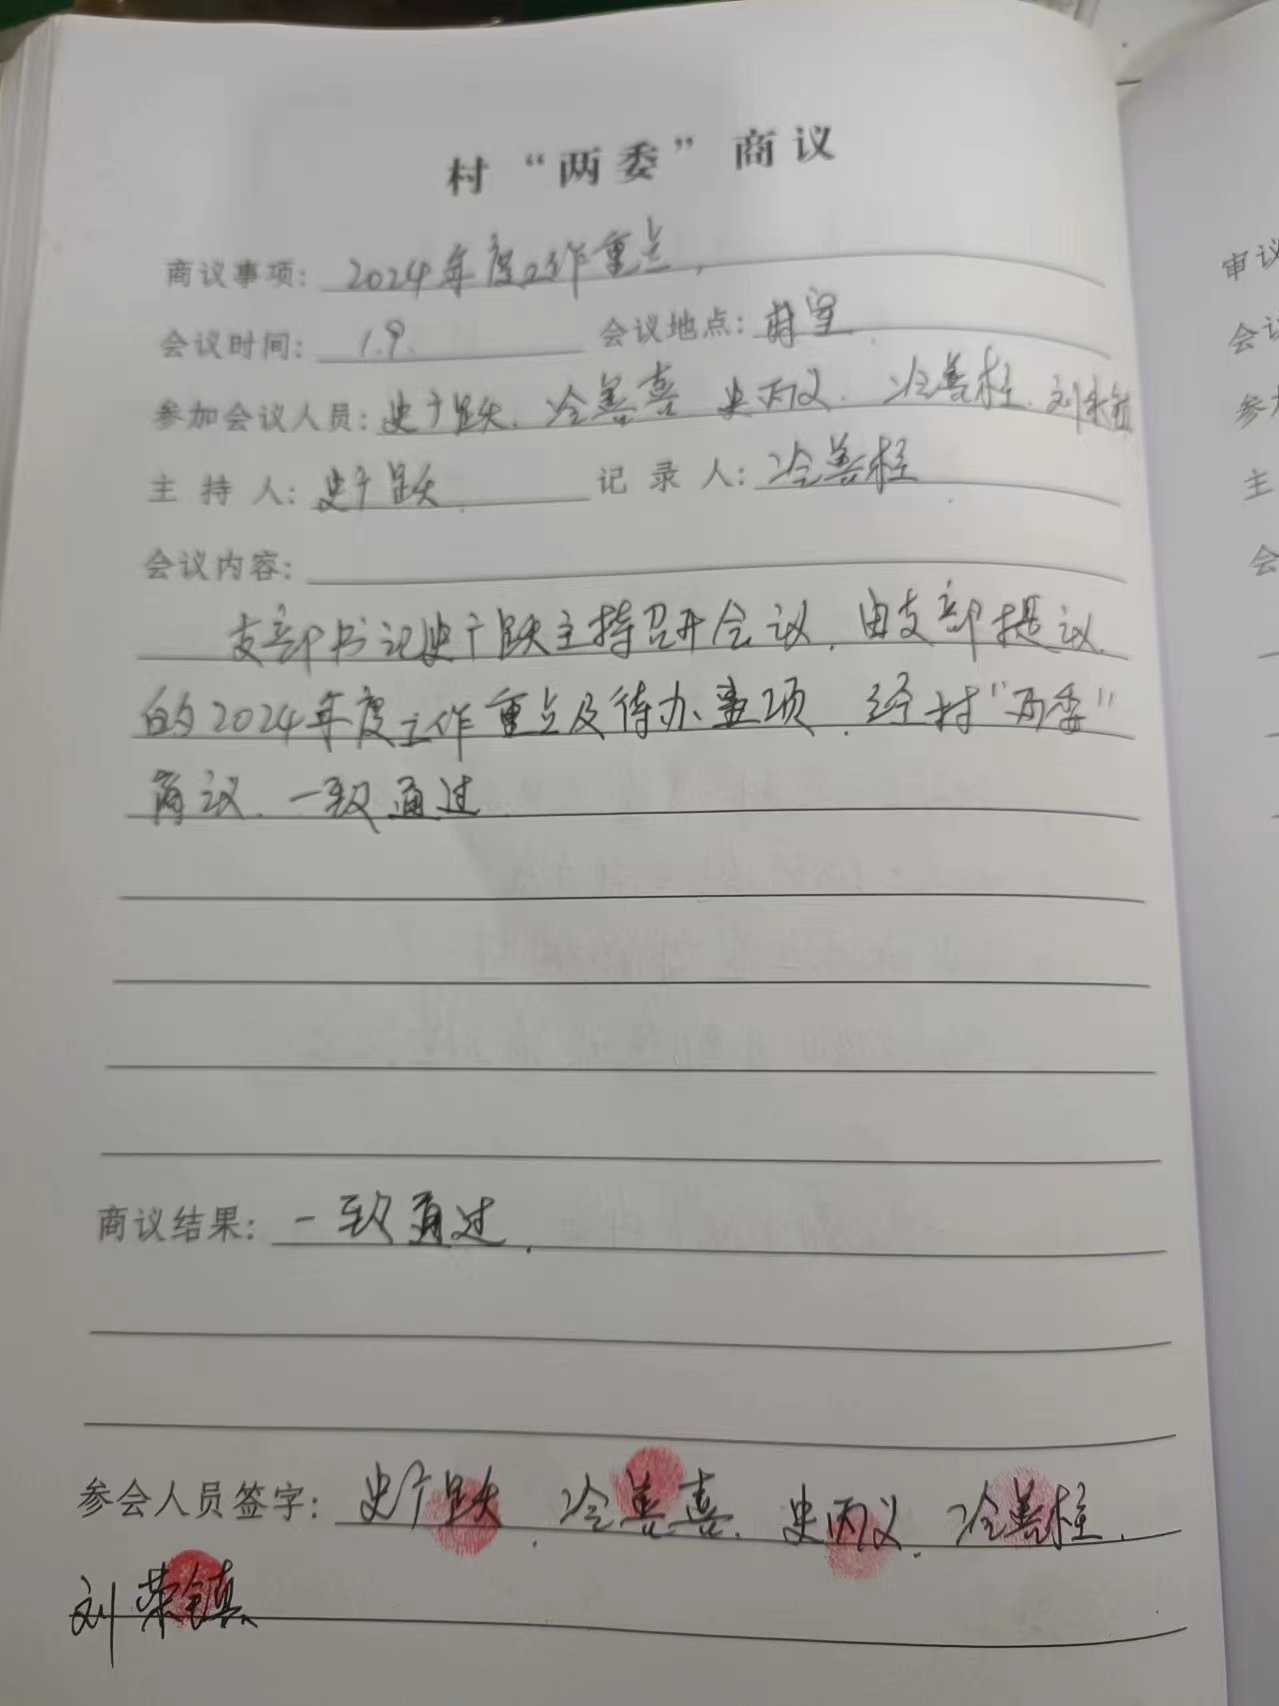 村“两委”商议
商议事项：2024年度工作重点.
会议时间：1.9. 会议地点：村室.
参加会议人员：史广跃. 冷善喜 史丙义. 冷善柱. 刘荣镇.
主持人：史广跃. 记录人：冷善柱
会议内容：
支部书记史广跃主持召开会议，由支部提议
的2024年度工作重点及待办事项，经村“两委”
商议，一致通过
商议结果：一致通过.
参会人员签字：史广跃. 冷善喜. 史丙义. 冷善柱.
刘荣镇
审议
会议
参加
主
会